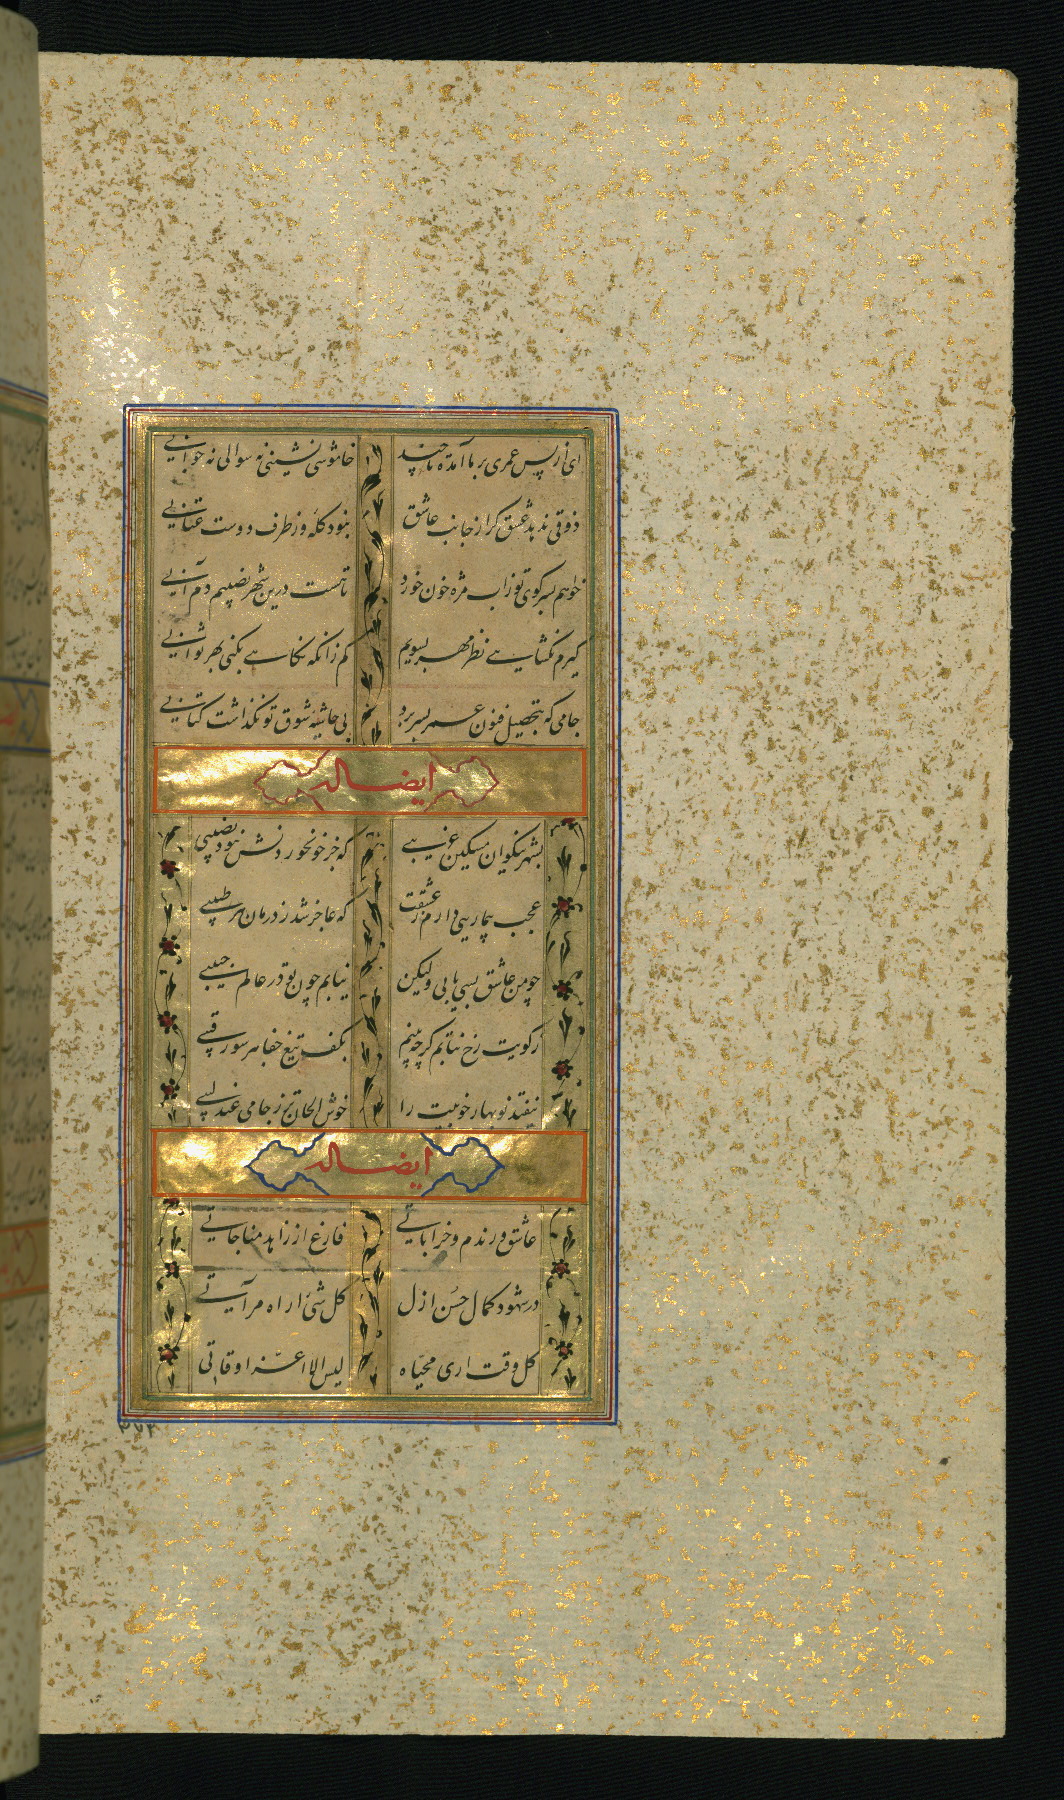 ای از پس عمری بر ما آمده تا چند خاموش نشینی نه سوالی نه جوابیی
ذوقی ندهد عشق کر از جانب عاشق نبود کله وز طرف دوست عتابیی
خواهم بسر کوی تو زاب مژه خون خورد تا هست درین شهر نصیبم دم آبیی
کیرم نکشایی نظر مهر بسویم کم زانکه نکاهی بکنی بهر ثوابیی
جامی که بتحصیل فنون عمر بسر برد بی حاشیه شوق تو نکذاشت کتابیی
ایضاله
بشهر نیکوان مسکین غریبی که جز خونخوردنش نبود نصیبی
عجب بیماریی دارم ز عشقت که عاجز شد ز درمان هر طبیبی
چو من عاشق بسی یابی ولیکن نیابم چون تو در عالم حبیبی
ز کویت رخ نتابم کرچه بینم بکف تیغ جفا هر سو رقیبی
نیفتد نوبهار خوبیت را خوش الحان تر ز جامی عندلیبی
ایضاله
عاشق و رندم و خراباتی فارغ از زاهد مناجاتی
در شهود کمال حسن ازل کل شئ اراه مرآتی
کل وقت اری محیاه لیس الا اعز اوقاتی